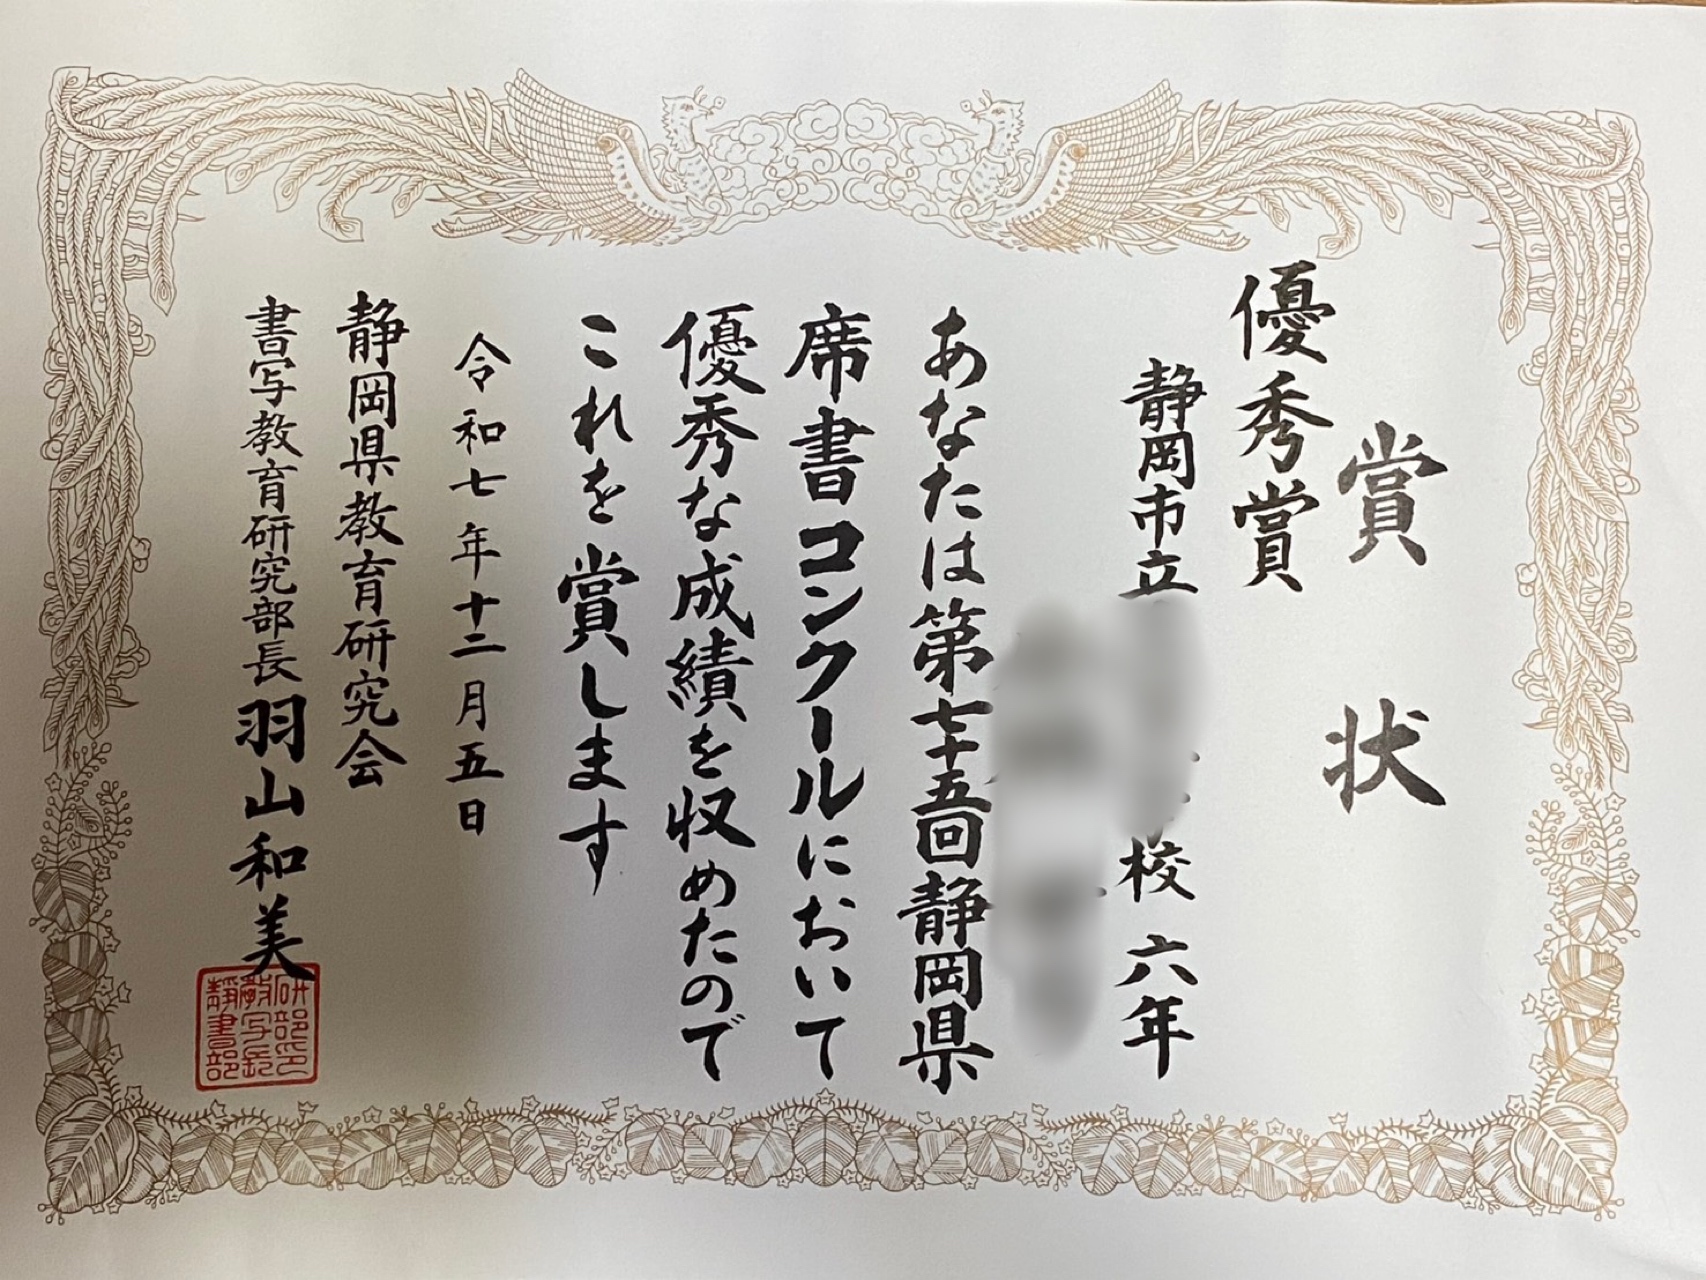 賞状
優秀賞
静岡市立
校 六年
あなたは第七十五回静岡県
席書コンクールにおいて
優秀な成績を収めたので
これを賞します
令和七年十二月五日
静岡県教育研究会
書写教育研究部長 羽山和美